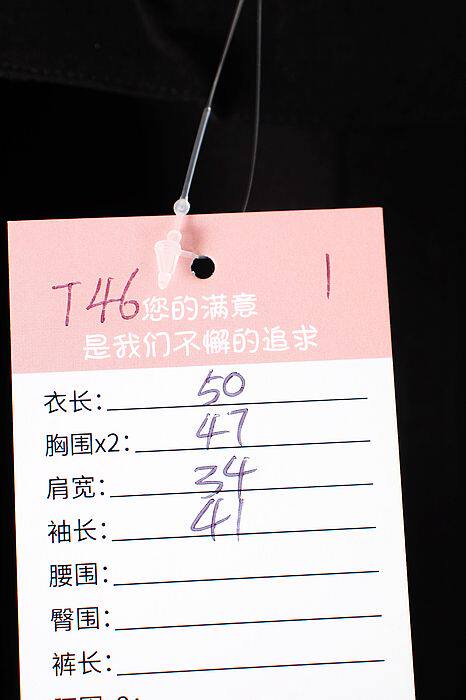 T46 1
您的满意
是我们不懈的追求
衣长: 50
胸围x2: 47
肩宽: 34
袖长: 41
腰围:
臀围:
裤长: